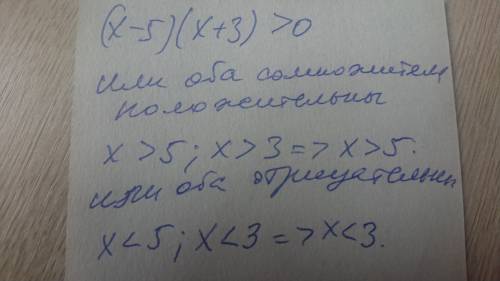 (x-5)(x+3)>0
или оба сомножителя
положительны
x>5; x>3=>x>5.
или оба отрицательны
x<5; x<3=>x<3.